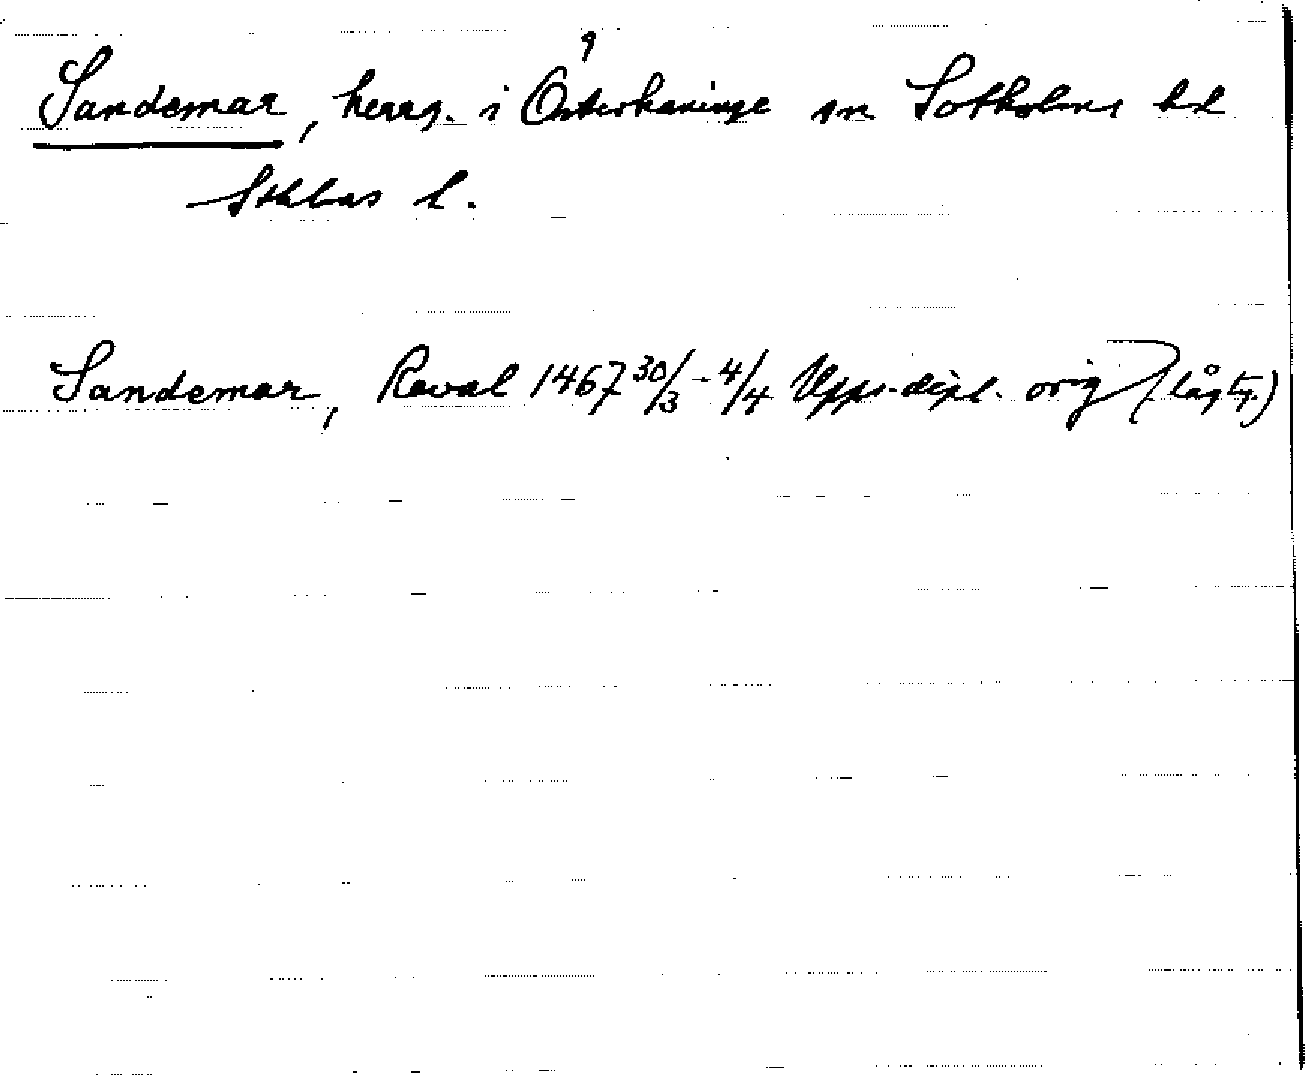 Sandemar, herrg. i Österhaninge sn Sotholms hd
Sthlms l.
Sandemar, Reval 1467 30/3 - 4/4 Upps. dipl. orig (lågty.)